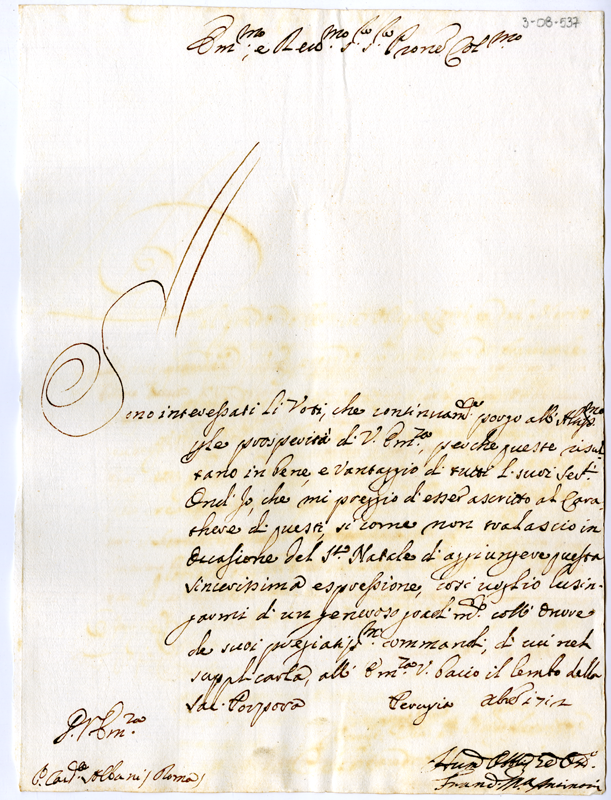 3-08-537
Em.mo, e Rev.mo S.r S.r Prone Col.mo
Sono interessati li Voti, che continuam.te porgo all'
ple prosperità di V. Em.za, perche queste risul
tano in bene, e vantaggio di tutti li suoi Ser.ri
Ond'Io, che mi pregio di esser ascritto al Cara
there di questi, si come non tralascio in
Occasione del S.to Natale di aggiungere questa
sincerissima espressione, così voglio lusin
garmi di un generoso gradim.to coll' onore
de suoi pregiatis.mi commandi, di cui nel
supplicarla, all' Em.za V. bacio il lembo della
Sac. Porpora Perugia Xbre
S.r Em.mo
Card.le Albani / Roma /
Hum
Fran